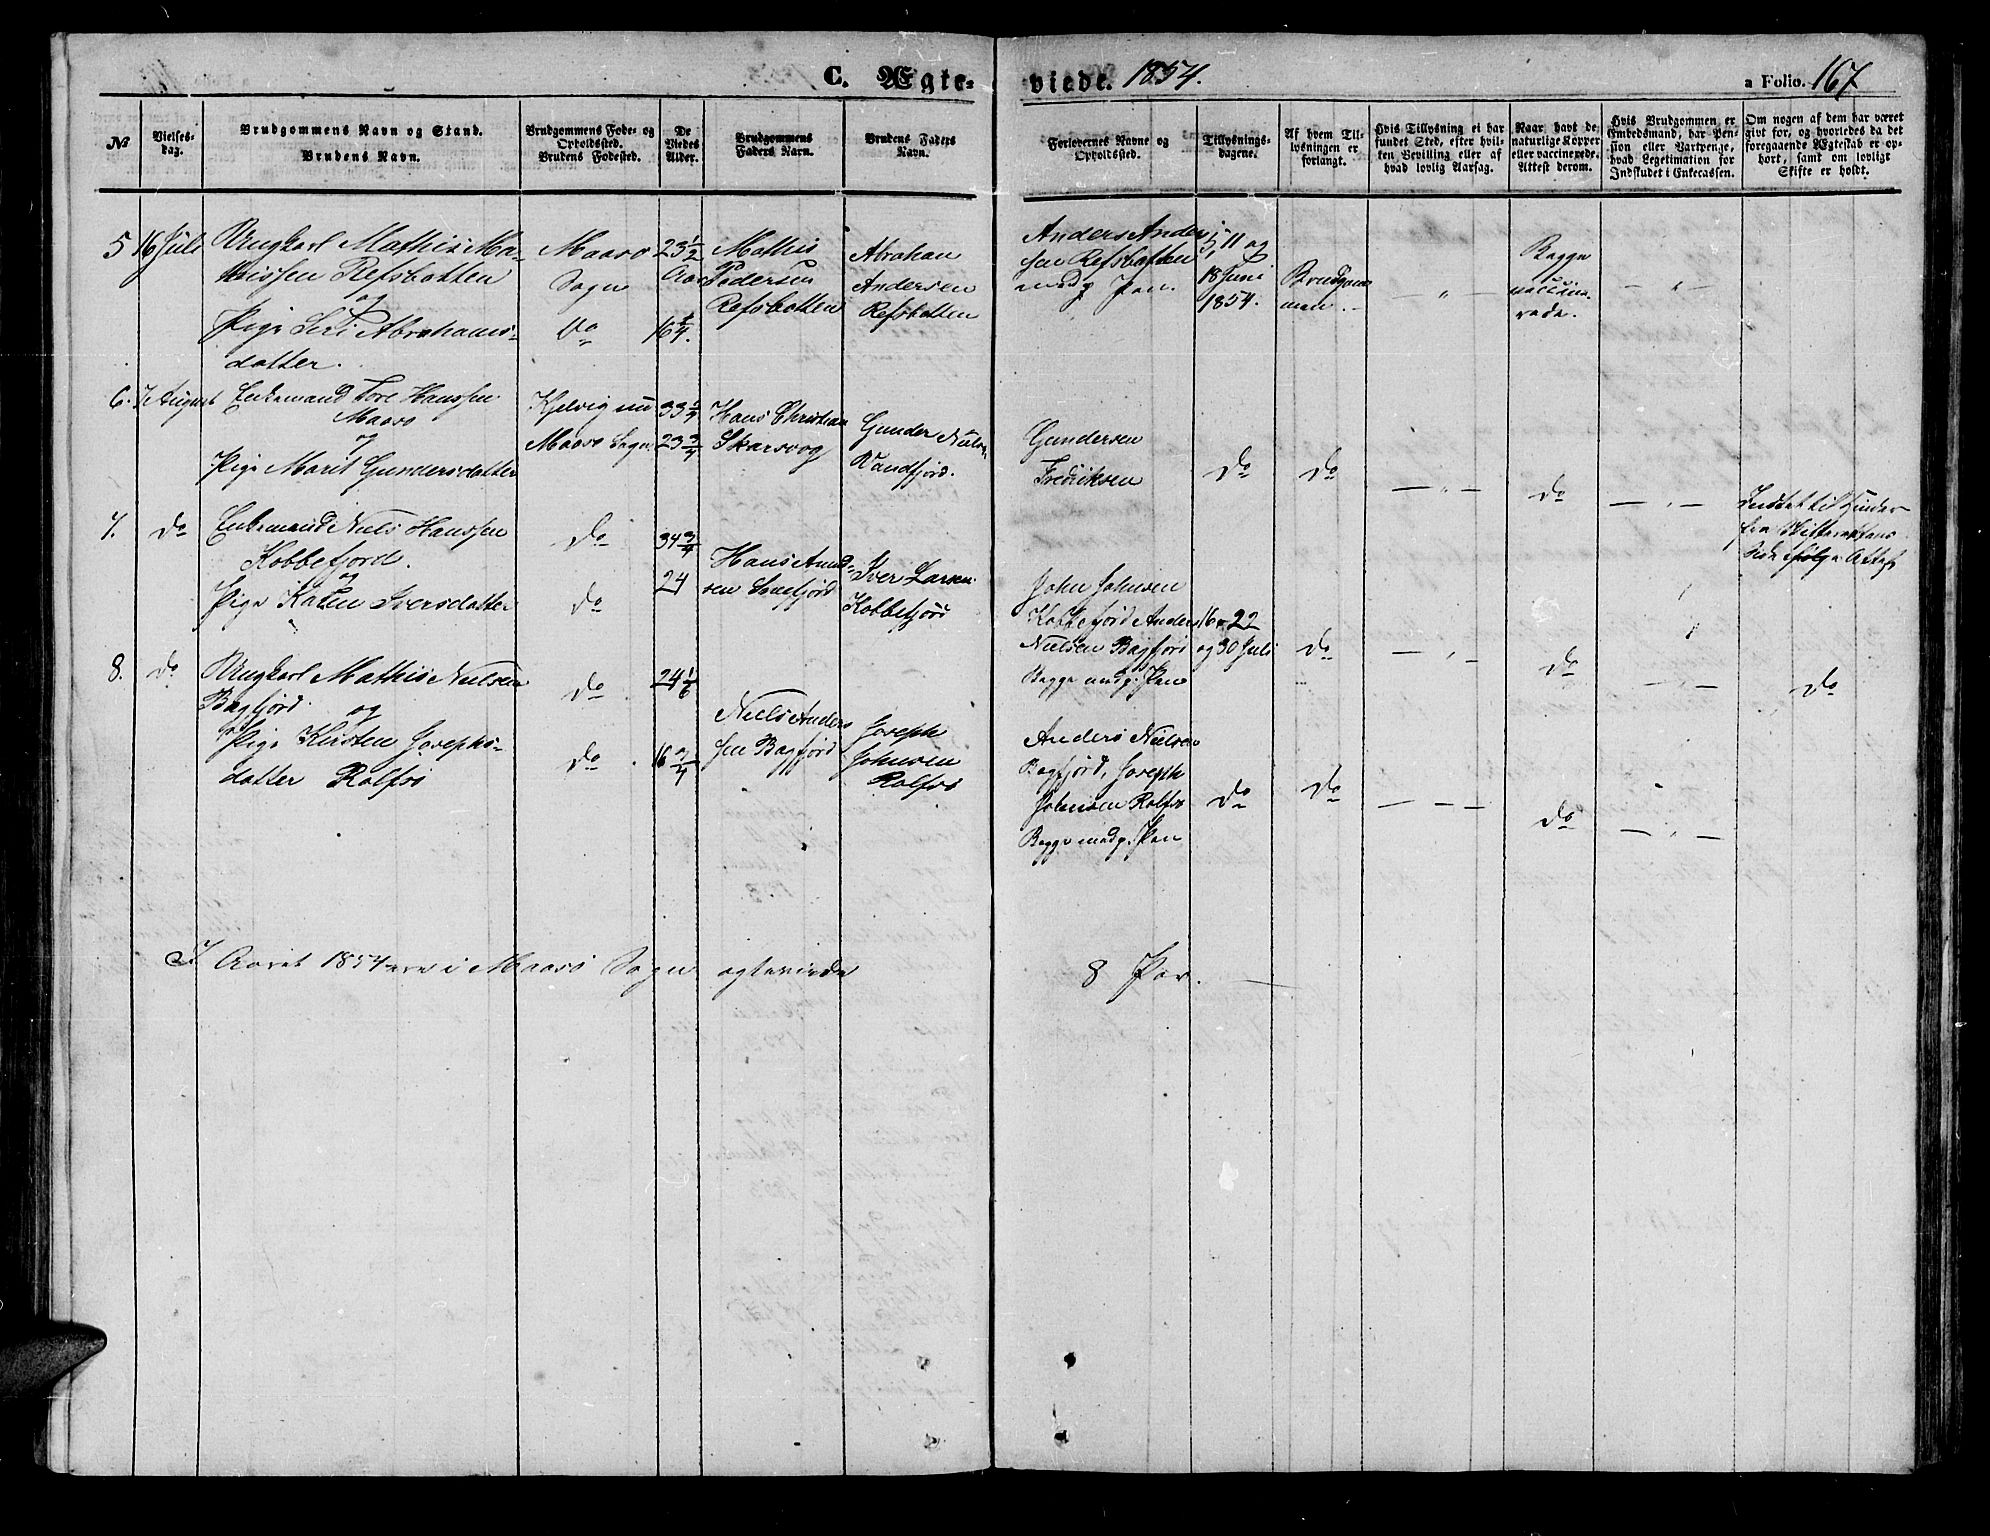 C. Ægte-
viede. 1854.
a Folio. 167
No
Vielses-
dag.
Brudgommens Navn og Stand.
Brudens Navn.
Brudgommens Føde- og
Opholdssted.
Brudens Fødested.
De
Viedes
Alder.
Brudgommens
Faders Navn.
Brudens Faders
Navn.
Forlovernes Navne og
Opholdssted.
Tillysnings-
dagene.
Af hvem Til-
lysningen er
forlangt.
Hvis Tillysning ei har
fundet Sted, efter hvil-
ken Bevilling eller af
hvad lovlig Aarsag.
Naar havt de
naturlige Kopper
eller vaccinerede.
Attest derom.
Hvis Brudgommen er
Embedsmand, har Pen-
sion eller Vartpenge,
hvad Legetimation for
Indskudet i Enkecassen.
Om nogen af dem har været
givt for, og hvorledes da det
foregaaende Ægteskab er op-
hørt, samt om lovligt
Skifte er holdt.
5 16 Juli
Ungkarl Mathis Ma-
thissen Refsbotten
og
Pige Siri Abrahams-
datter.
Maasø
Sogn
Do
23 1/2
Aar
16 1/4.
Mathis
Pedersen
Refsbotten
Abraham
Andersen
Refsbotten
Anders Ander
sen Refsbotten
medp. Pen.
5, 11 og
18 Juni
1854.
Brudgom
men.
— " —
Begge
vaccine-
rede.
— " —
6. 7 August
Enkemand Tore Hanssen
Maasø
og
Pige Marit Gundersdatter
Kjelvig nu
Maasø Sogn
33 1/4
23 3/4
Hans Christian
Skarsvog
Gunder Niels
Vandfjord.
Gundersen
Fredriksen
Do
Do
— " —
Do
— " —
7. Do
Enkemand Niels Hanssen
Kobbefjord.
og
Pige Karen Iversdatter
Do
Do
34 3/4
24
Hans Amund-
sen
Iver Larsen
Kobbefjord
John Johnsen
Kobbefjord Anders
Nielsen Bagfjord
Begge medp. Pen
16 22
og 30 Juli
Do
— " —
Do
— " —
Do
8. Do
Ungkarl Mathis Nielsen
Bagfjord.
og
Pige Kirsten Josephs-
datter Rolfsø
Do
Do
24 1/6
16 3/4
Niels Anders
sen Bagfjord
Joseph
Johnsen
Rolfsø
Anders Nielsen
Bagfjord, Joseph
Johnsen Rolfsø
Begge medp. Pen
Do
Do
— — —
Do
— " —
I Aaret 1854 ere i Maasø Sogn ægteviede 8 Par.